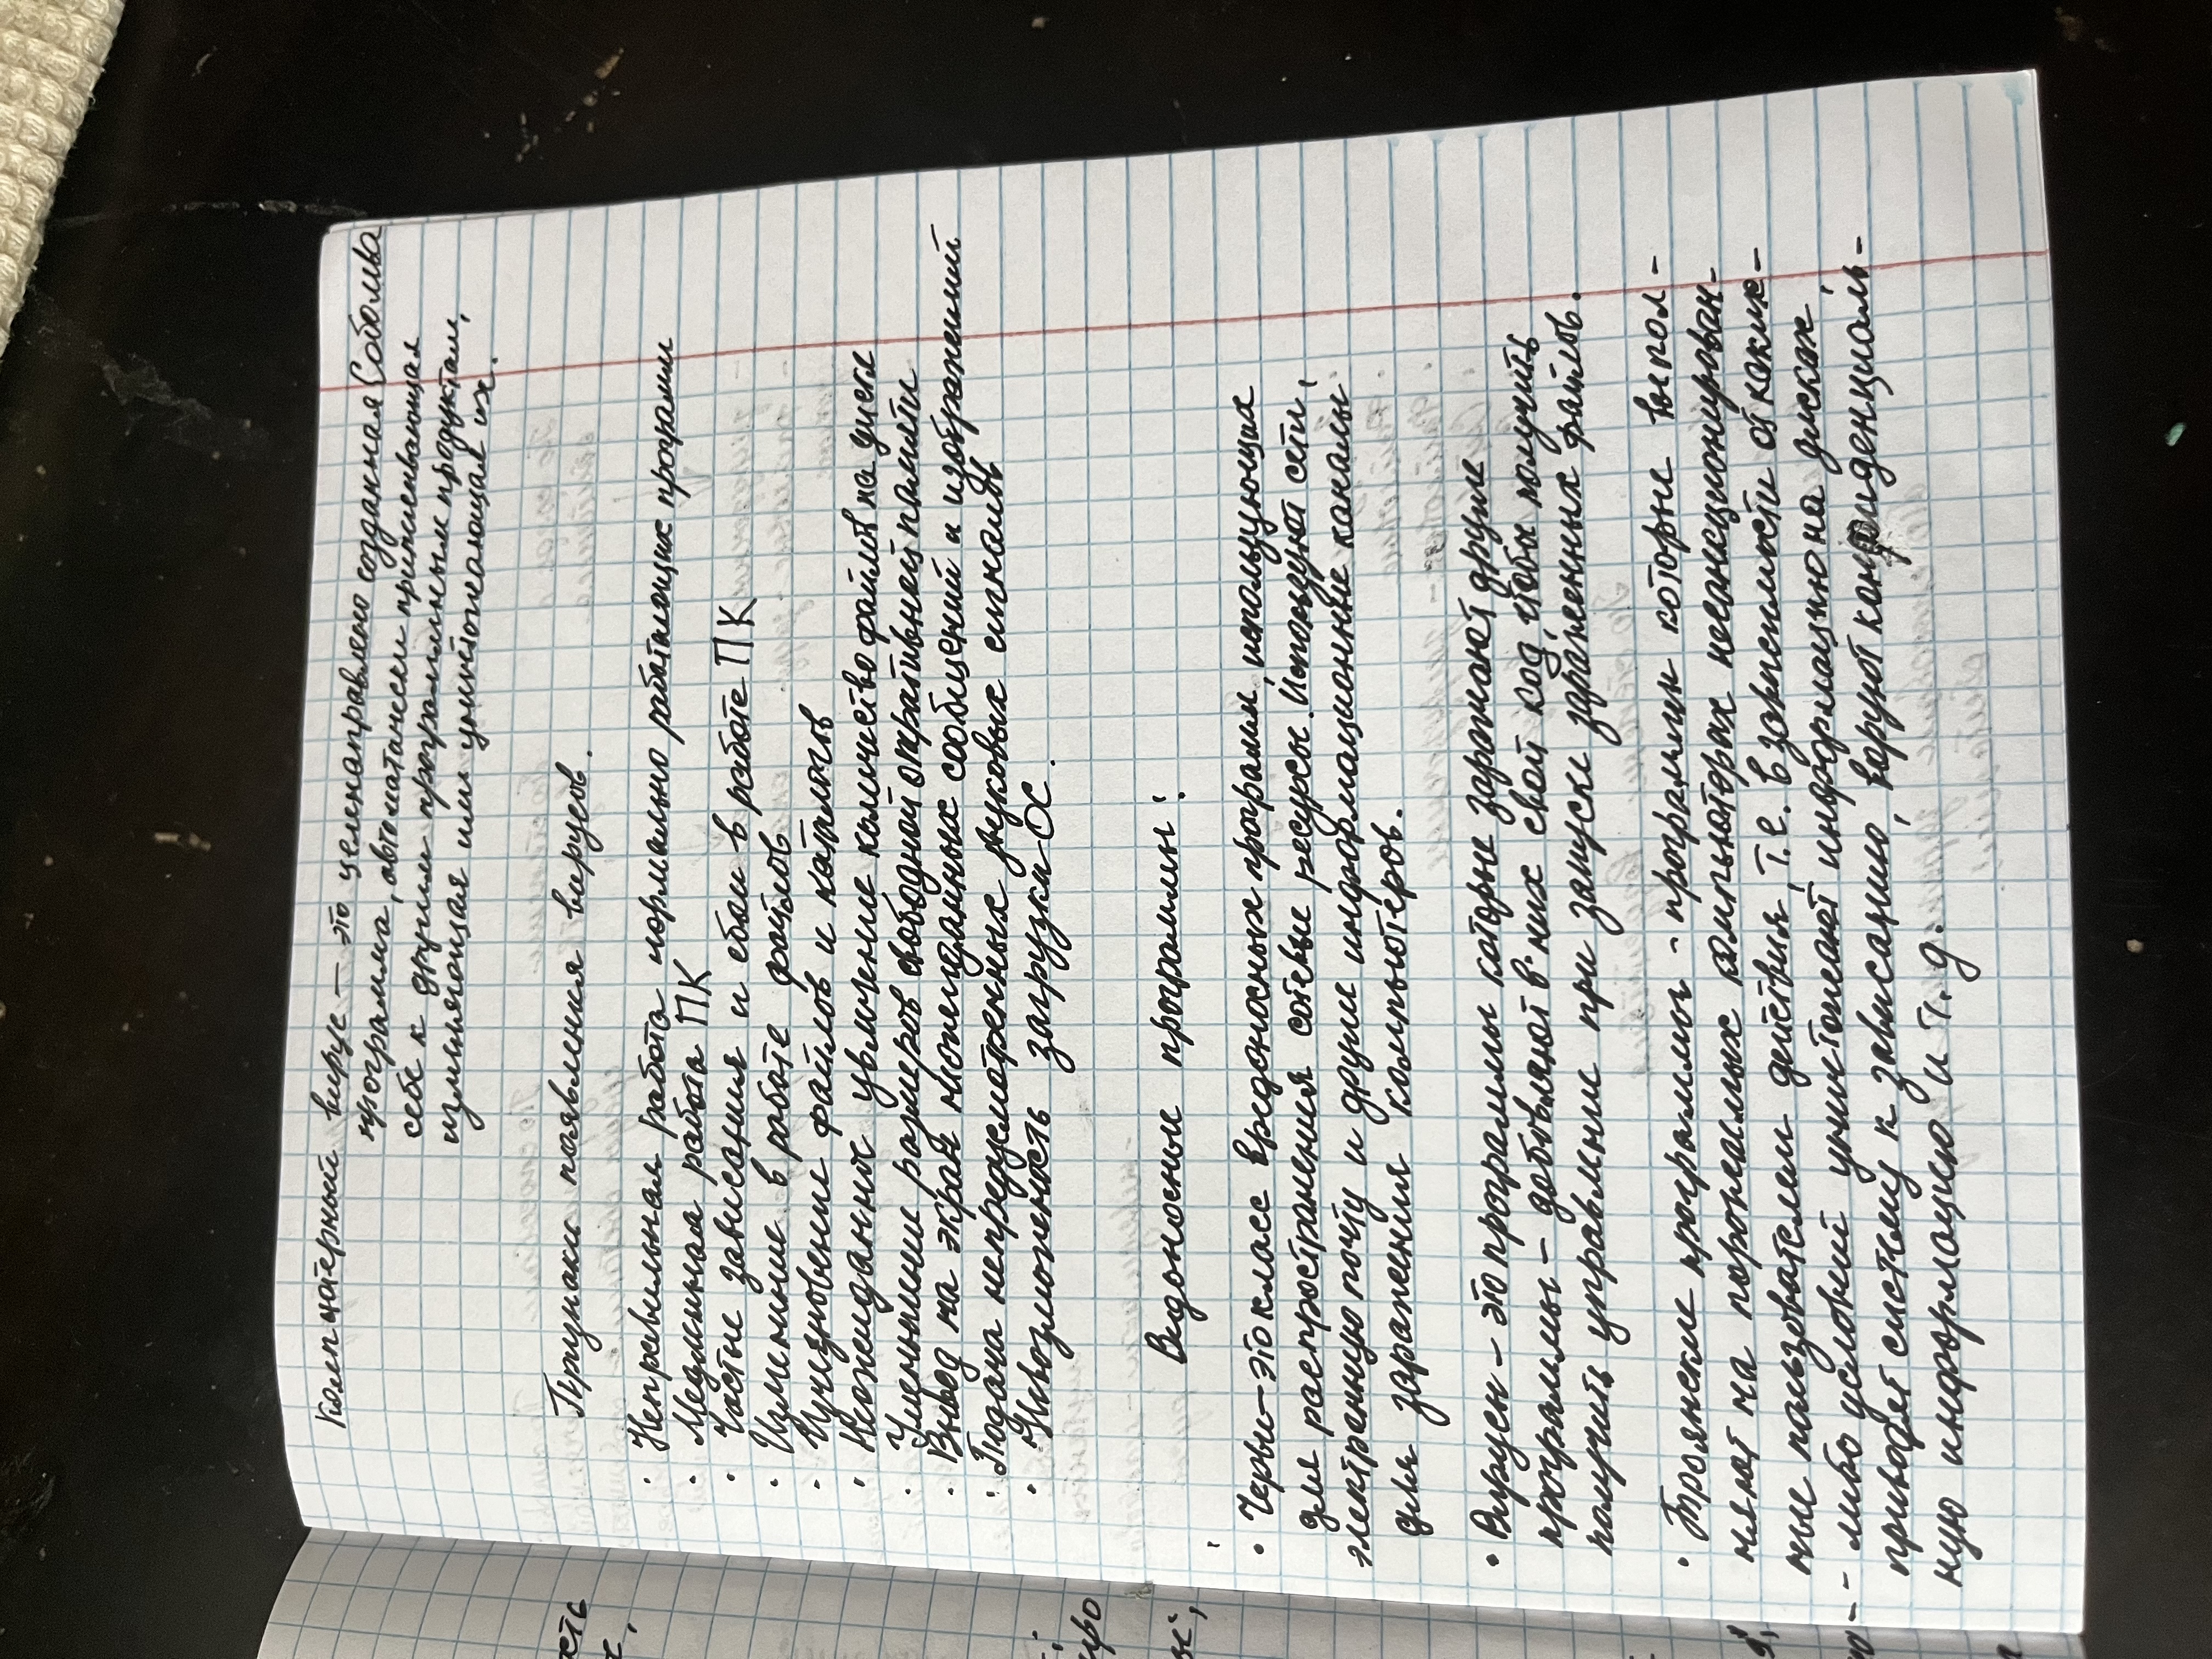 Компьютерный вирус – это целенаправлено созданная Соболива
программа, автоматически приписывающая
себе к другим программным продуктам,
изменяющая или уничтожающая их.
Признаки появления вирусов.
· Неправильная работа нормально работающих программ
· Медленная работа ПК
· Частые зависания и сбои в работе ПК
· Изменение в работе файлов
· Исчезновение файлов и каталогов
· Неожиданное увеличение количество файлов на диске
· Уменьшение размеров свободной оперативной памяти
· Вывод на экран неожиданных сообщений и изображений
· Подача непредусмотренных звуковых сигналов
· Невозможность загрузки ОС.
Видоносные программы:
· Черви – это класс вредоносных програм, использующих
для распространения сетевые ресурсы. Используют сети,
электронную почту и другие информационные каналы
для заражения компьютеров.
· Вирусы – это программы которые заражают другие
программы – добовляют в них свой код, чтобы получить
получить управление при запуске зараженных файлов.
· Троянские программы - программы которые выпол-
няют на поражаемых компьюторах несанкционирован-
ные пользователем действия, т.е. в зависимости от каких-
- либо условий уничтожают информацию на дисках,
приводят систему к зависанию, варуют конфиденциаль-
ную информацию и т. д.